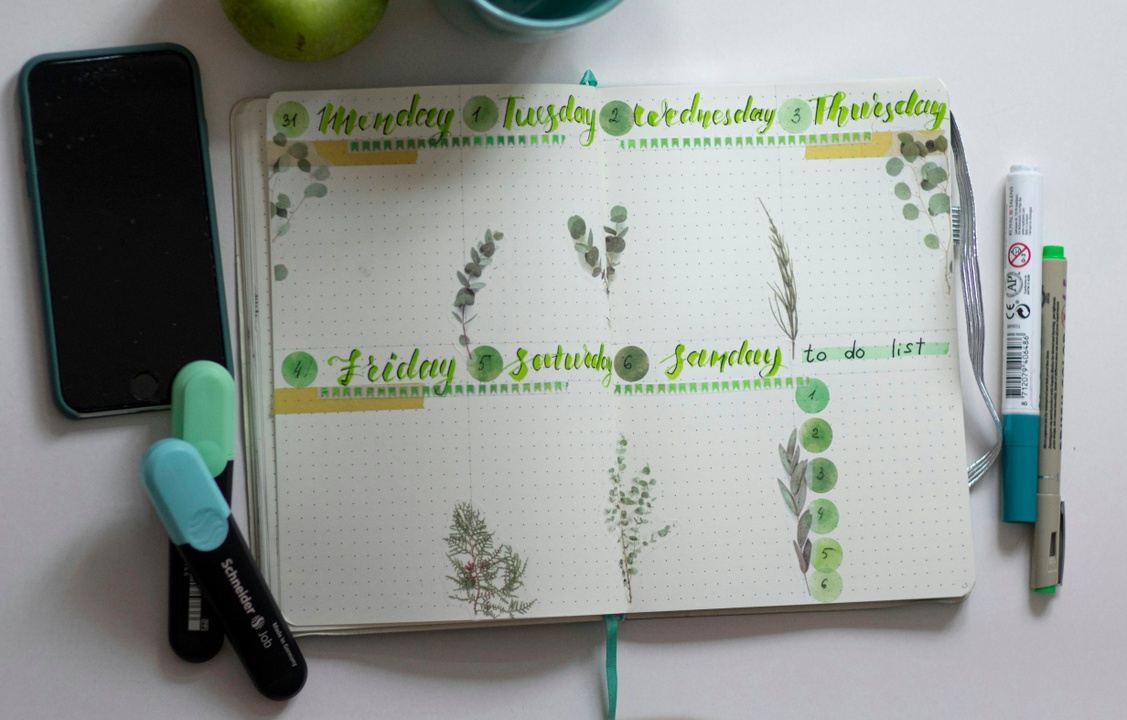 31 Monday 1 Tuesday 2 Wednesday 3 Thursday
4 Friday 5 Saturday 6 Sunday
to do list
1
2
3
4
5
6
Schneider Job
Made in Germany
AP
CE
0-3
8 712079 406486